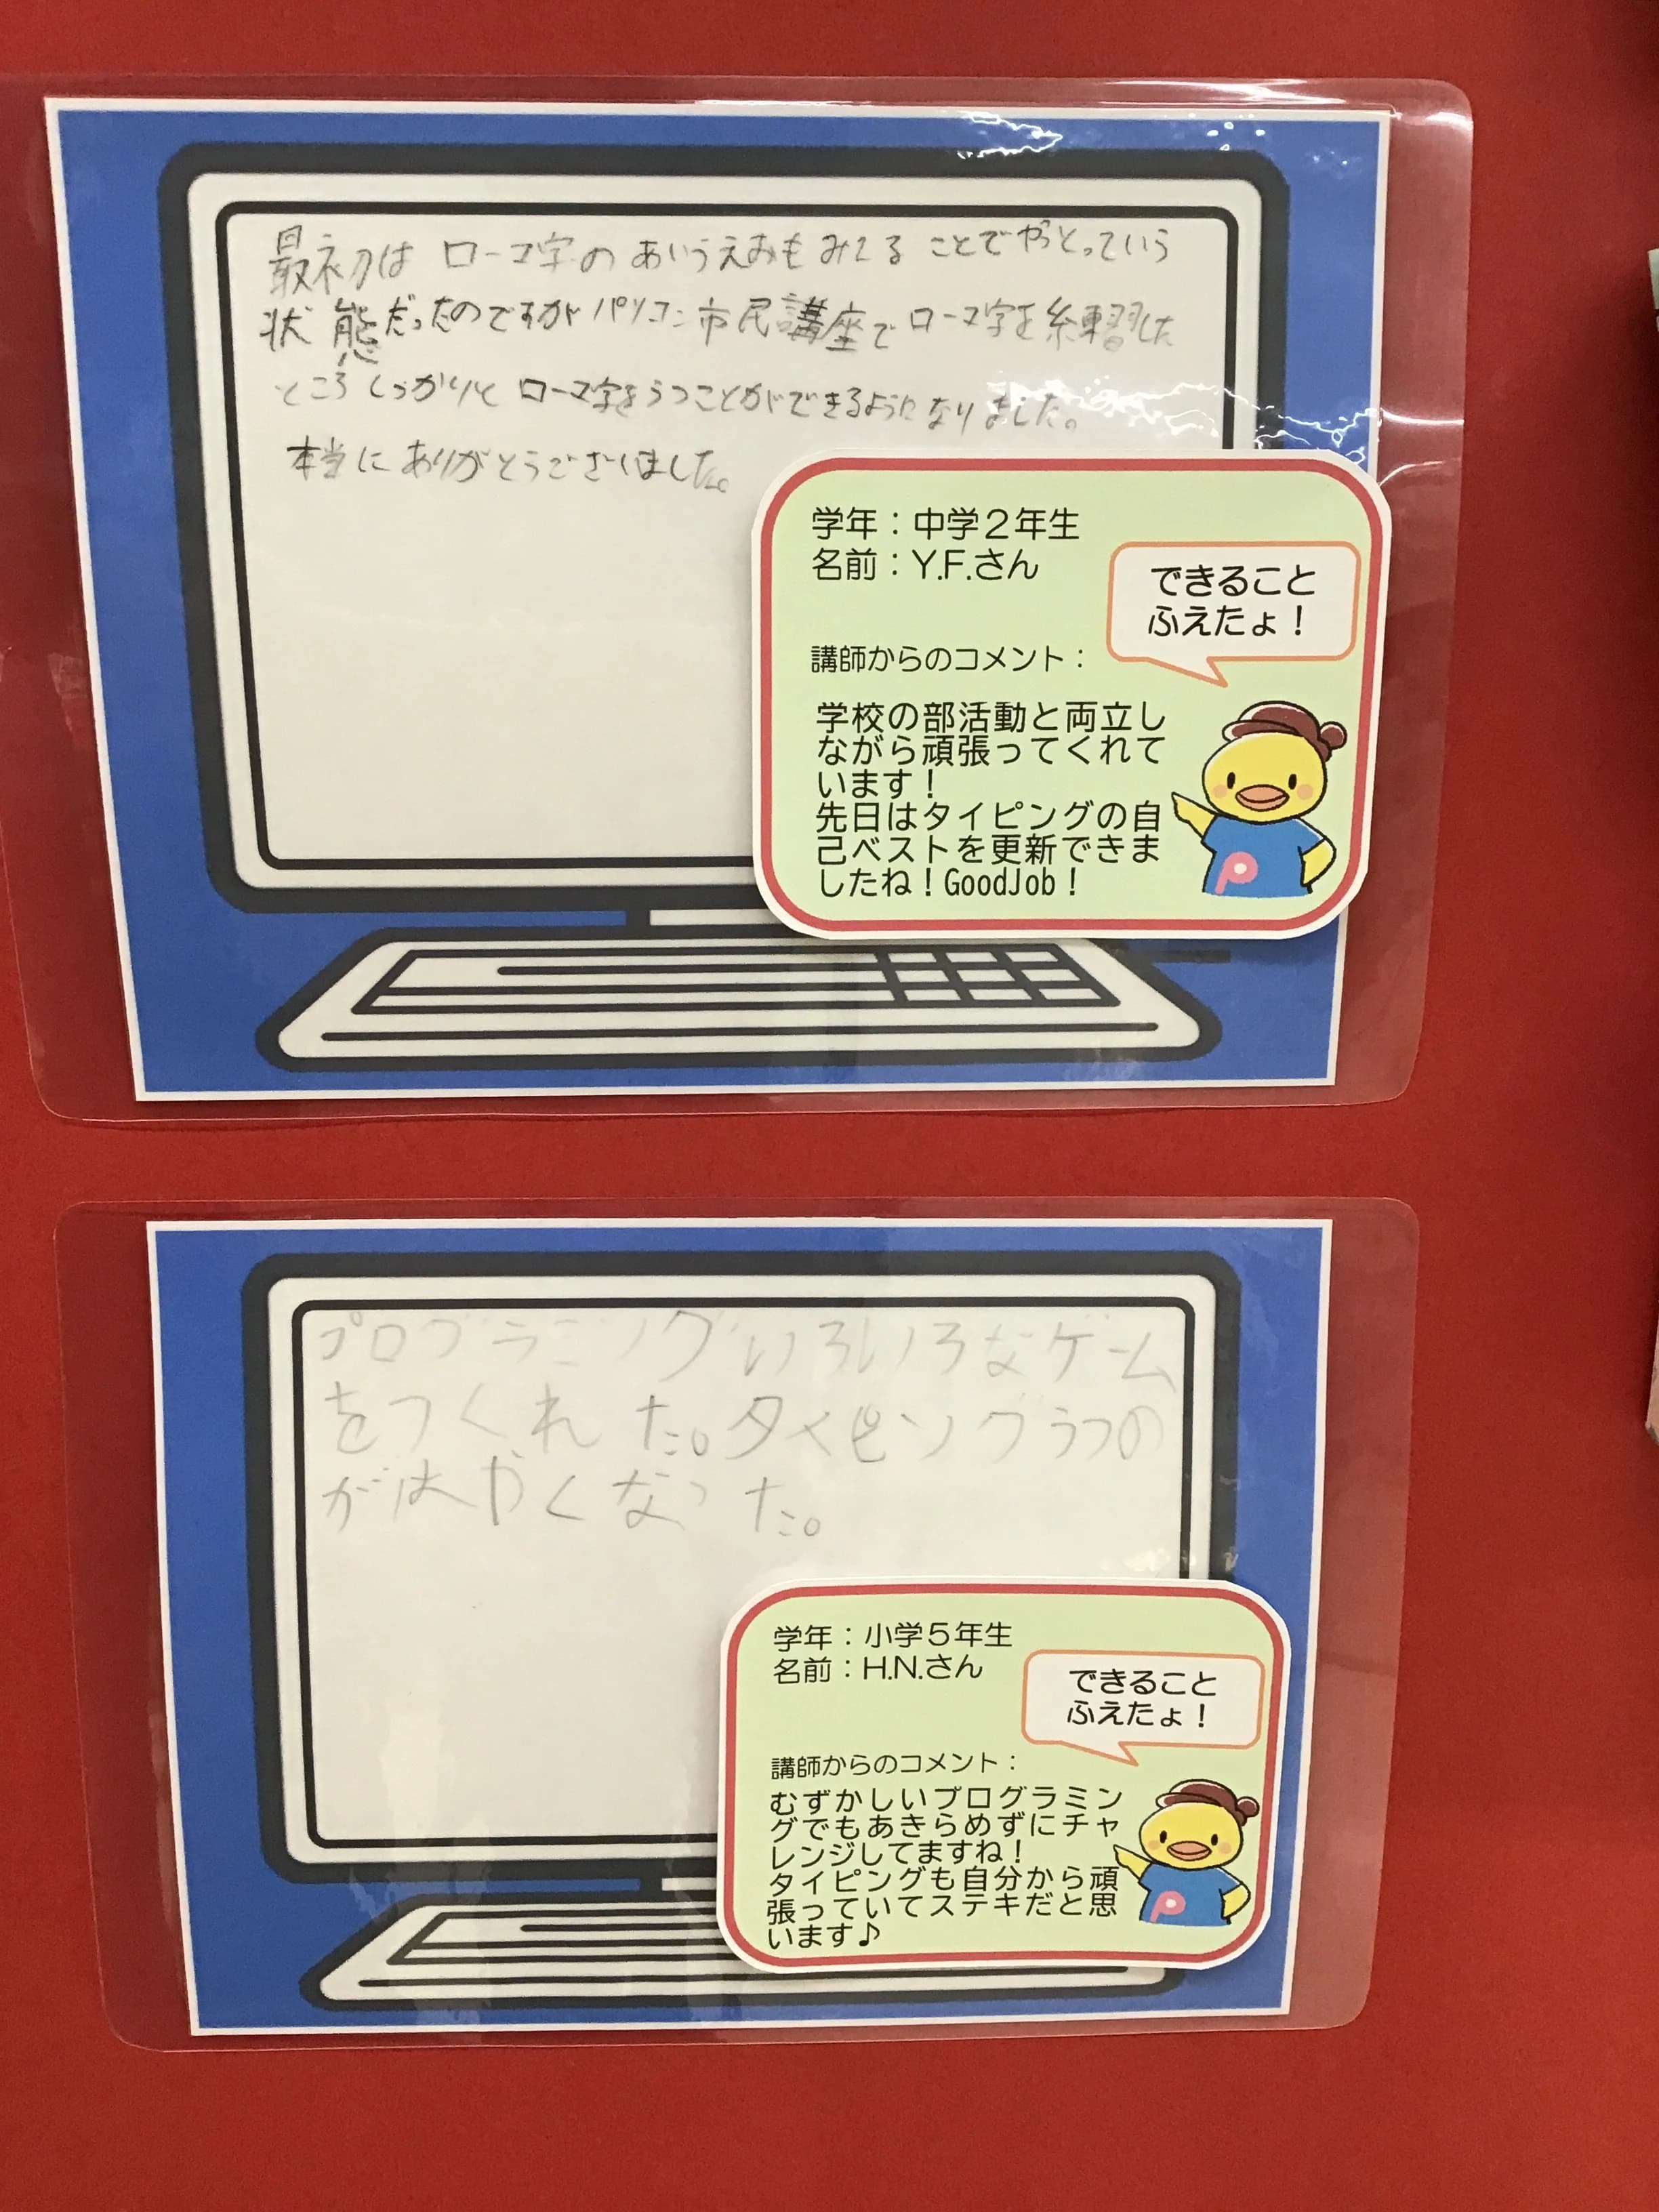 最初は ローマ字の あいうえおもみてることでやっとっていう
状態だったのですが パソコン市民講座で ローマ字を練習した
ところ しっかりと ローマ字をうつことができるようになりました。
本当に ありがとうございました。
学年：中学２年生
名前：Y.F.さん
できること
ふえたょ！
講師からのコメント：
学校の部活動と両立し
ながら頑張ってくれて
います！
先日はタイピングの自
己ベストを更新できま
したね！GoodJob！
プログラミングいろいろなゲーム
をつくれた。タイピングうつの
がはやくなった。
学年：小学５年生
名前：H.N.さん
できること
ふえたょ！
講師からのコメント：
むずかしいプログラミン
グでもあきらめずにチャ
レンジしてますね！
タイピングも自分から頑
張っていてステキだと思
います♪